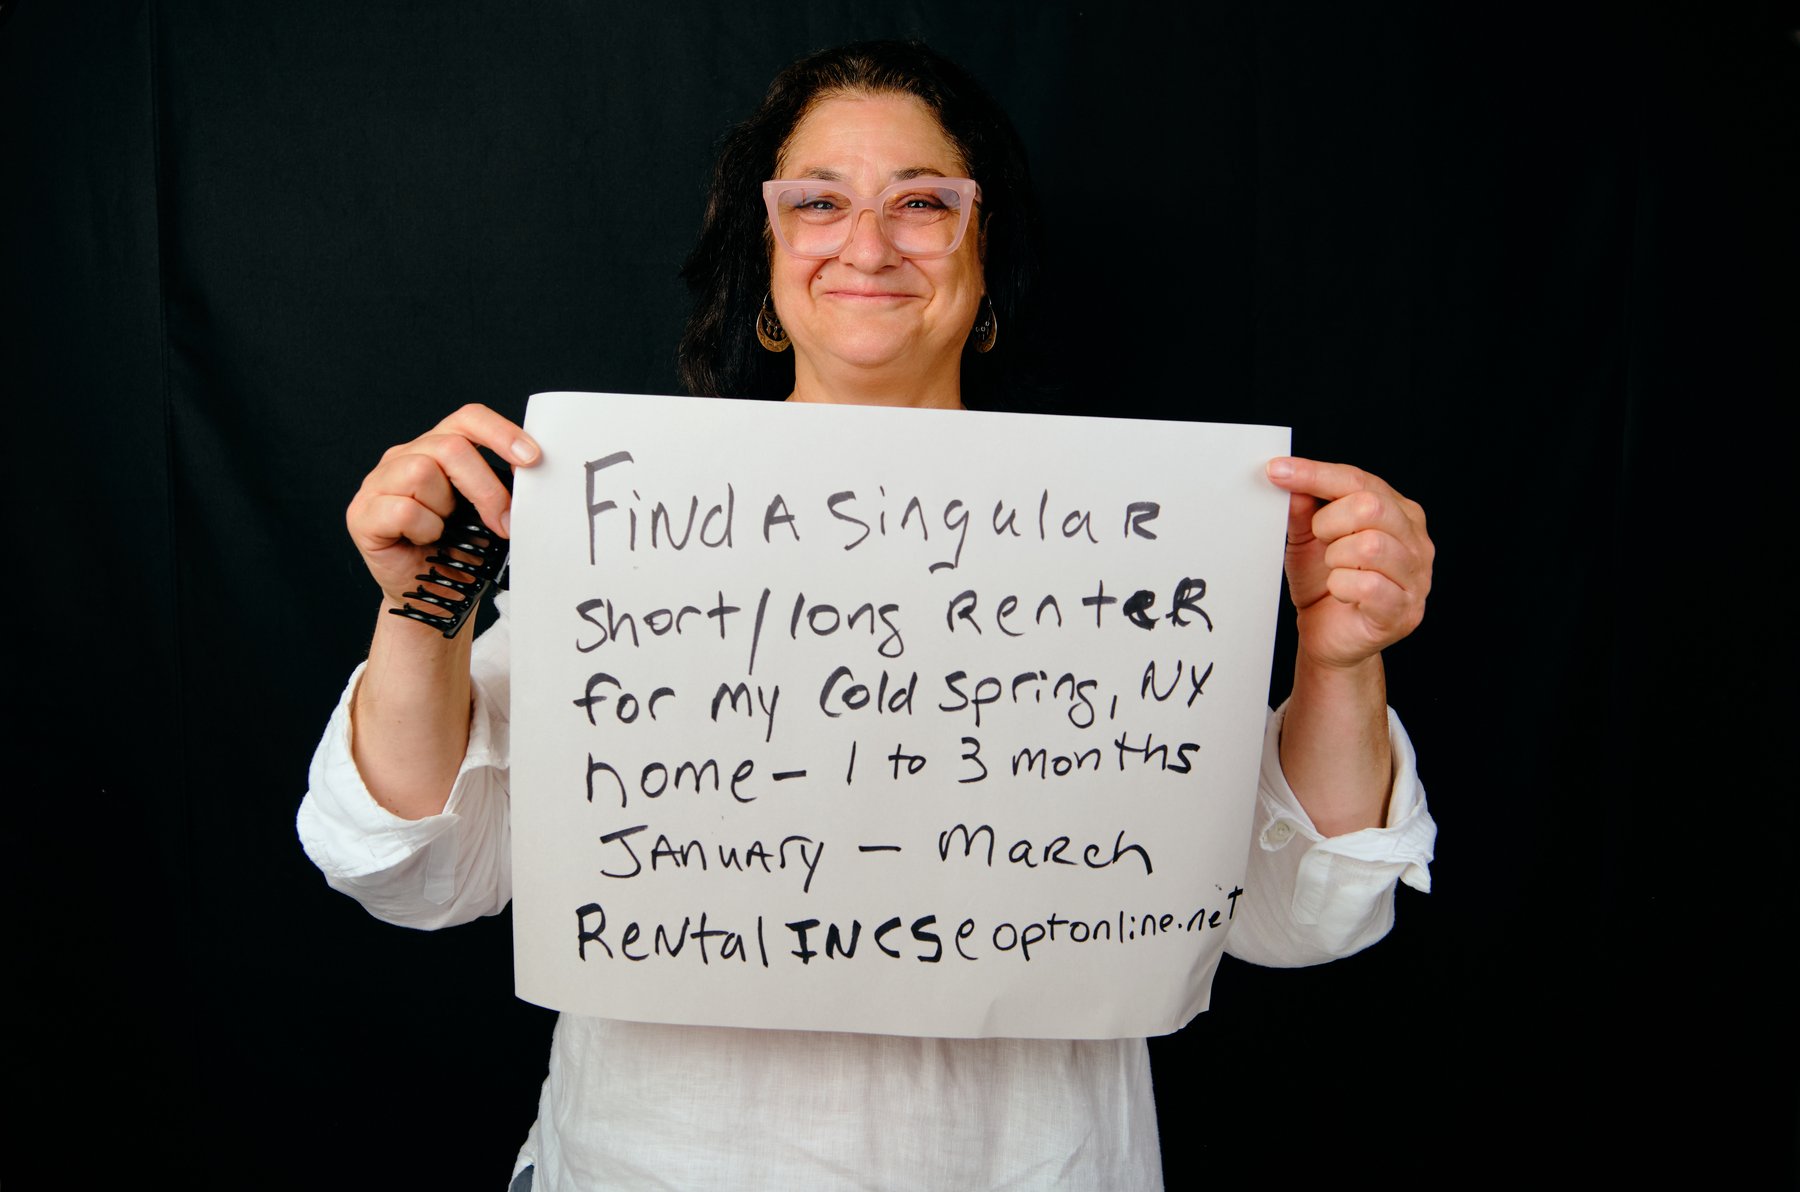 Find A Singular
short/long Renter
for my Cold Spring, NY
home - 1 to 3 months
January - March
RentalINCS@optonline.net